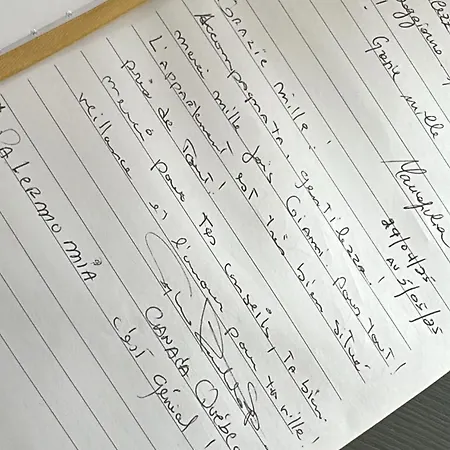 Grazie mille
29/04/25
au 5/05/25
Grazie mille!
Accompagnata, gentilezza!
merci mille fois Gianni pour tout!
L'appartement est très bien situé
près de tout!
merci pour tes conseils, ta bien
veillance et l'amour pour ta ville!
CANADA Québec
c'est génial!
PALERMO MIA